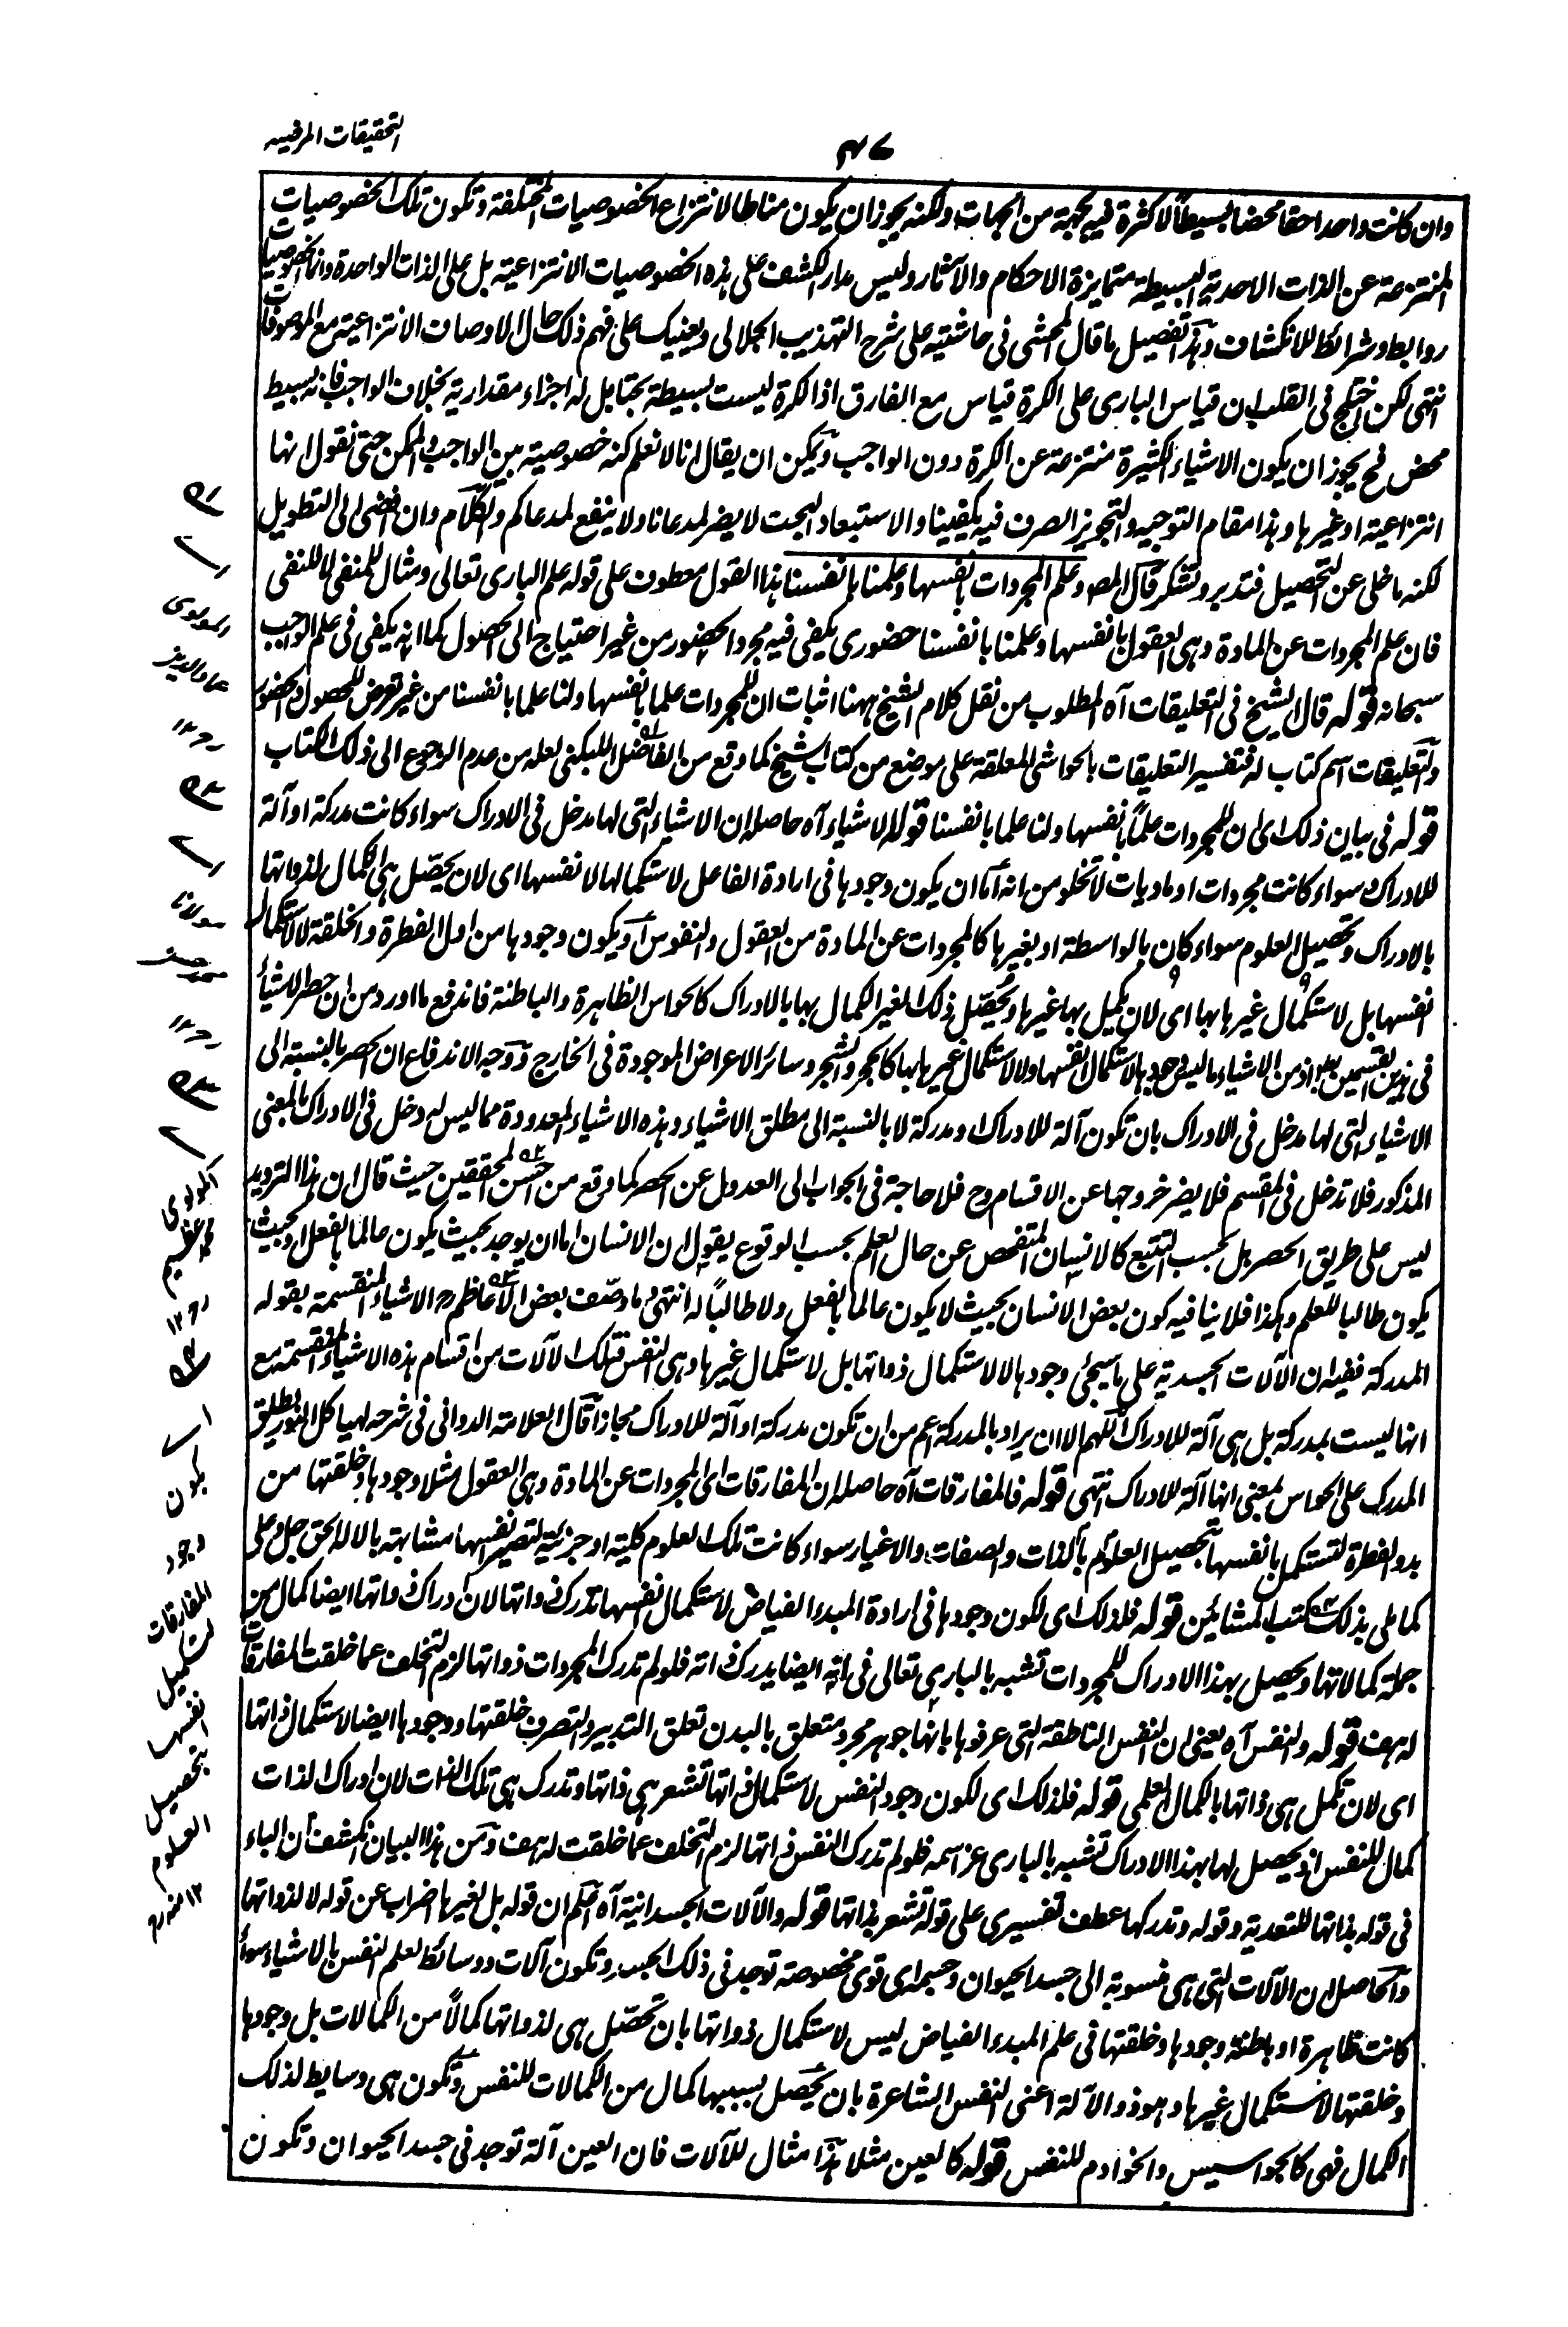 التحقيقات المرضيه
٤٧
وان كانت واحدا حقا محضا بسيطا لا كثرة فيه بجهة من الجهات ولكنه يجوز ان يكون مناطا لانتزاع الخصوصيات المختلفة وتكون تلك الخصوصيات
المنتزعة عن الذات الاحدية البسيطة متمايزة الاحكام والآثار وليس مدار الكشف على هذه الخصوصيات الانتزاعية بل على الذات الواحدة وانما الخصوصيات
روابط وشرائط للانكشاف وهذا تفصيل ما قال المحشى فى حاشيته على شرح التهذيب الجلالى ويعينك على فهم ذلك حال الاوصاف الانتزاعية مع الموصوفات
انتهى لكن اختلج فى القلب ان قياس البارى على الكرة قياس مع الفارق اذ الكرة ليست بسيطة بحتا بل له اجزاء مقدارية بخلاف الواجب فانه بسيط
محض فح يجوز ان يكون الاشياء الكثيرة منتزعة عن الكرة دون الواجب ويمكن ان يقال انا لا نعلم كنه خصوصية بين الواجب والممكن حتى نقول انها
انتزاعية او غيرها وهذا مقام التوجيه والتجويز الصرف فيه يكفينا والاستبعاد البحت لا يضر لمدعانا ولا ينفع لمدعاكم والكلام وان افضى الى التطويل
لكنه ما خلى عن التحصيل فتدبر وتشكر قال المصـ وعلم المجردات بانفسها وعلمنا بانفسنا هذا القول معطوف على قوله علم البارى تعالى ومثال للمنفى لا للنفى
فان علم المجردات عن المادة وهى العقول بانفسها وعلمنا بانفسنا حضورى يكفى فيه مجرد الحضور من غير احتياج الى الحصول كما انه يكفى فى علم الواجب
سبحانه قوله قال الشيخ فى التعليقات آه المطلوب من نقل كلام الشيخ ههنا اثبات ان للمجردات علما بانفسها ولنا علما بانفسنا من غير تعرض للحصول والحضور
والتعليقات اسم كتاب له فتفسير التعليقات بالحواشى المعلقة على موضع من كتاب الشيخ كما وقع من الفاضل اللبكنى لعله من عدم الرجوع الى ذلك الكتاب
قوله فى بيان ذلك اى ان للمجردات علما بانفسها ولنا علما بانفسنا قوله الاشياء آه حاصله ان الاشياء التى لها مدخل فى الادراك سواء كانت مدركة او آلة
للادراك وسواء كانت مجردات او ماديات لا تخلو من انه اما ان يكون وجودها فى ارادة الفاعل لاستكمالها لانفسها اى لان يحصل هى الكمال لذواتها
بالادراك وتحصيل العلوم سواء كان بالواسطة او بغيرها كالمجردات عن المادة من العقول والنفوس او يكون وجودها من اول الفطرة والخلقة لا لاستكمال
انفسها بل لاستكمال غيرها بها اى لان يكمل بها غيرها ويحصل ذلك الغير الكمال بها بالادراك كالحواس الظاهرة والباطنة فاندفع ما اورد من ان حصر الاشياء
فى هذين القسمين بط اذ من الاشياء ما ليس وجودها لاستكمال انفسها ولا لاستكمال غيرها بها كالحجر والشجر وسائر الاعراض الموجودة فى الخارج ووجه الاندفاع ان الحصر بالنسبة الى
الاشياء التى لها مدخل فى الادراك بان تكون آلة للادراك او مدركة لا بالنسبة الى مطلق الاشياء وهذه الاشياء المعدودة مما ليس له دخل فى الادراك بالمعنى
المذكور فلا تدخل فى المقسم فلا يضر خروجها عن الاقسام وح فلا حاجة فى الجواب الى العدول عن الحصر كما وقع من احسن المحققين حيث قال ان هذا الترديد
ليس على طريق الحصر بل بحسب التتبع كالانسان المتفحص عن حال العلم بحسب الوقوع يقول ان الانسان اما ان يوجد بحيث يكون عالما بالفعل او بحيث
يكون طالبا للعلم وهكذا فلا ينافيه كون بعض الانسان بحيث لا يكون عالما بالفعل ولا طالبا له انتهى وما وصف بعض الاعاظم رح الاشياء المنقسمة بقوله
المدركة ففيه ان الآلات الجسدية على ما سيجئ وجودها لا لاستكمال ذواتها بل لاستكمال غيرها وهى النفس فتلك الآلات من اقسام هذه الاشياء المنقسمة مع
انها ليست بمدركة بل هى آلة للادراك اللهم الا ان يراد بالمدركة اعم من ان تكون مدركة او آلة للادراك مجازا قال العلامة الدوانى فى شرحه لهياكل النور يطلق
المدرك على الحواس بمعنى انها آلة للادراك انتهى قوله فالمفارقات آه حاصله ان المفارقات اى المجردات عن المادة وهى العقول مثلا وجودها وخلقتها من
بدو الفطرة لتستكمل بانفسها بتحصيل العلوم بالذات والصفات والاغيار سواء كانت تلك العلوم كلية او جزئية لتصير انفسها مشابهة بالاله الحق جل وعلى
كما ملى بذلك كتب المشائين قوله فلذلك اى لكون وجودها فى ارادة المبدء الفياض لاستكمال انفسها تدرك ذواتها لان ادراك ذواتها ايضا كمال من
جملة كمالاتها ويحصل بهذا الادراك للمجردات تشبه بالبارى تعالى فى انه ايضا يدرك ذاته فلو لم تدرك المجردات ذواتها لزم التخلف عما خلقت المفارقات
له هف قوله والنفس آه يعنى ان النفس الناطقة التى عرفوها بانها جوهر مجرد متعلق بالبدن تعلق التدبير والتصرف خلقتها ووجودها ايضا لاستكمال ذاتها
اى لان تكمل هى ذاتها بالكمال العلمى قوله فلذلك اى لكون وجود النفس لاستكمال ذاتها تشعر هى ذاتها وتدرك هى تلك الذات لان ادراك الذات
كمال للنفس اذ يحصل لها بهذا الادراك تشبه بالبارى عز اسمه فلو لم تدرك النفس ذاتها لزم التخلف عما خلقت له هف ومن هذا البيان انكشف ان الباء
فى قوله بذاتها للتعدية وقوله وتدركها عطف تفسيرى على قوله تشعر بذاتها قوله والآلات الجسدانية آه اعلم ان قوله بل لغيرها اضراب عن قوله لا لذواتها
والحاصل ان الآلات التى هى منسوبة الى جسد الحيوان وجسمه اى قوى مخصوصة توجد فى ذلك الجسد وتكون آلات ووسائط لعلم النفس بالاشياء سواء
كانت ظاهرة او باطنة وجودها وخلقتها فى علم المبدء الفياض ليس لاستكمال ذواتها بان تحصل هى لذواتها كمالا من الكمالات بل وجودها
وخلقتها لاستكمال غيرها وهو ذو الآلة اعنى النفس الشاعرة بان يحصل بسببها كمال من الكمالات للنفس وتكون هى وسايط لذلك
الكمال فهى كالجواسيس والخوادم للنفس قوله كالعين مثلا هذا مثال للآلات فان العين آلة توجد فى جسد الحيوان وتكون
المولوى
عماد الدين
مولانا
المولوى
محمد عظيم
اى
لكون
وجود
المفارقات
لتكميل
انفسها
بتحصيل
العلوم
١٢ منه رح